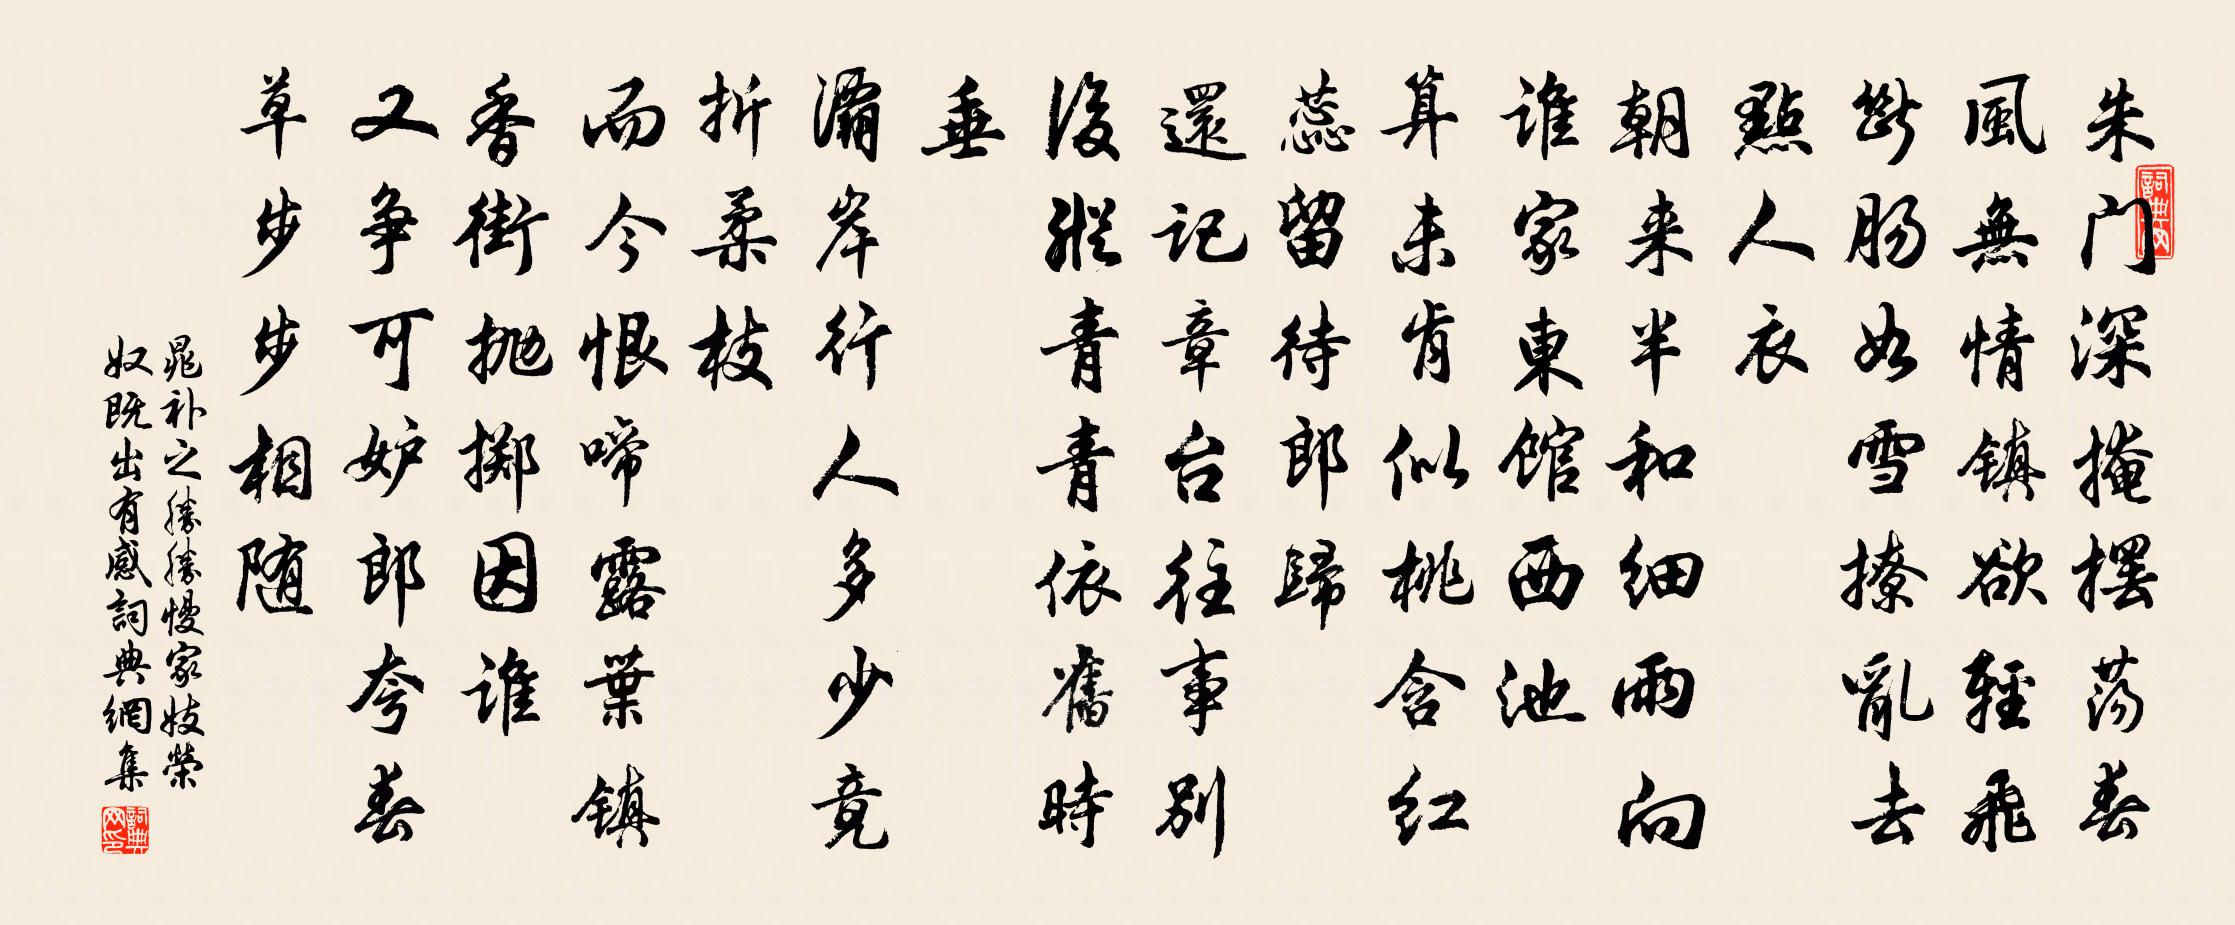 朱门深掩摆荡春
風無情镇欲輕飛
斷肠如雪撩亂去
點人衣
朝来半和细雨向
谁家東馆西池
算未肯似桃含红
蕊留待郎歸
還记章台往事别
後纵青青依舊時
垂
灞岸行人多少竟
折柔枝
而今恨啼露葉镇
香街抛掷因谁
又争可妒郎夸春
草步步相随
晁补之勝勝慢家妓榮
奴既出有感詞典網集